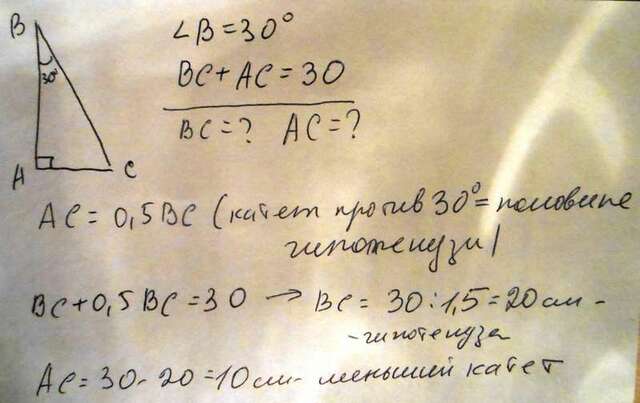 B
∠B = 30°
30°
BC + AC = 30
BC = ? AC = ?
A
C
AC = 0,5 BC (катет против 30° = половине
гипотенузи)
BC + 0,5 BC = 30 → BC = 30 : 1,5 = 20 см -
- гипотенуза
AC = 30 - 20 = 10 см - меньший катет